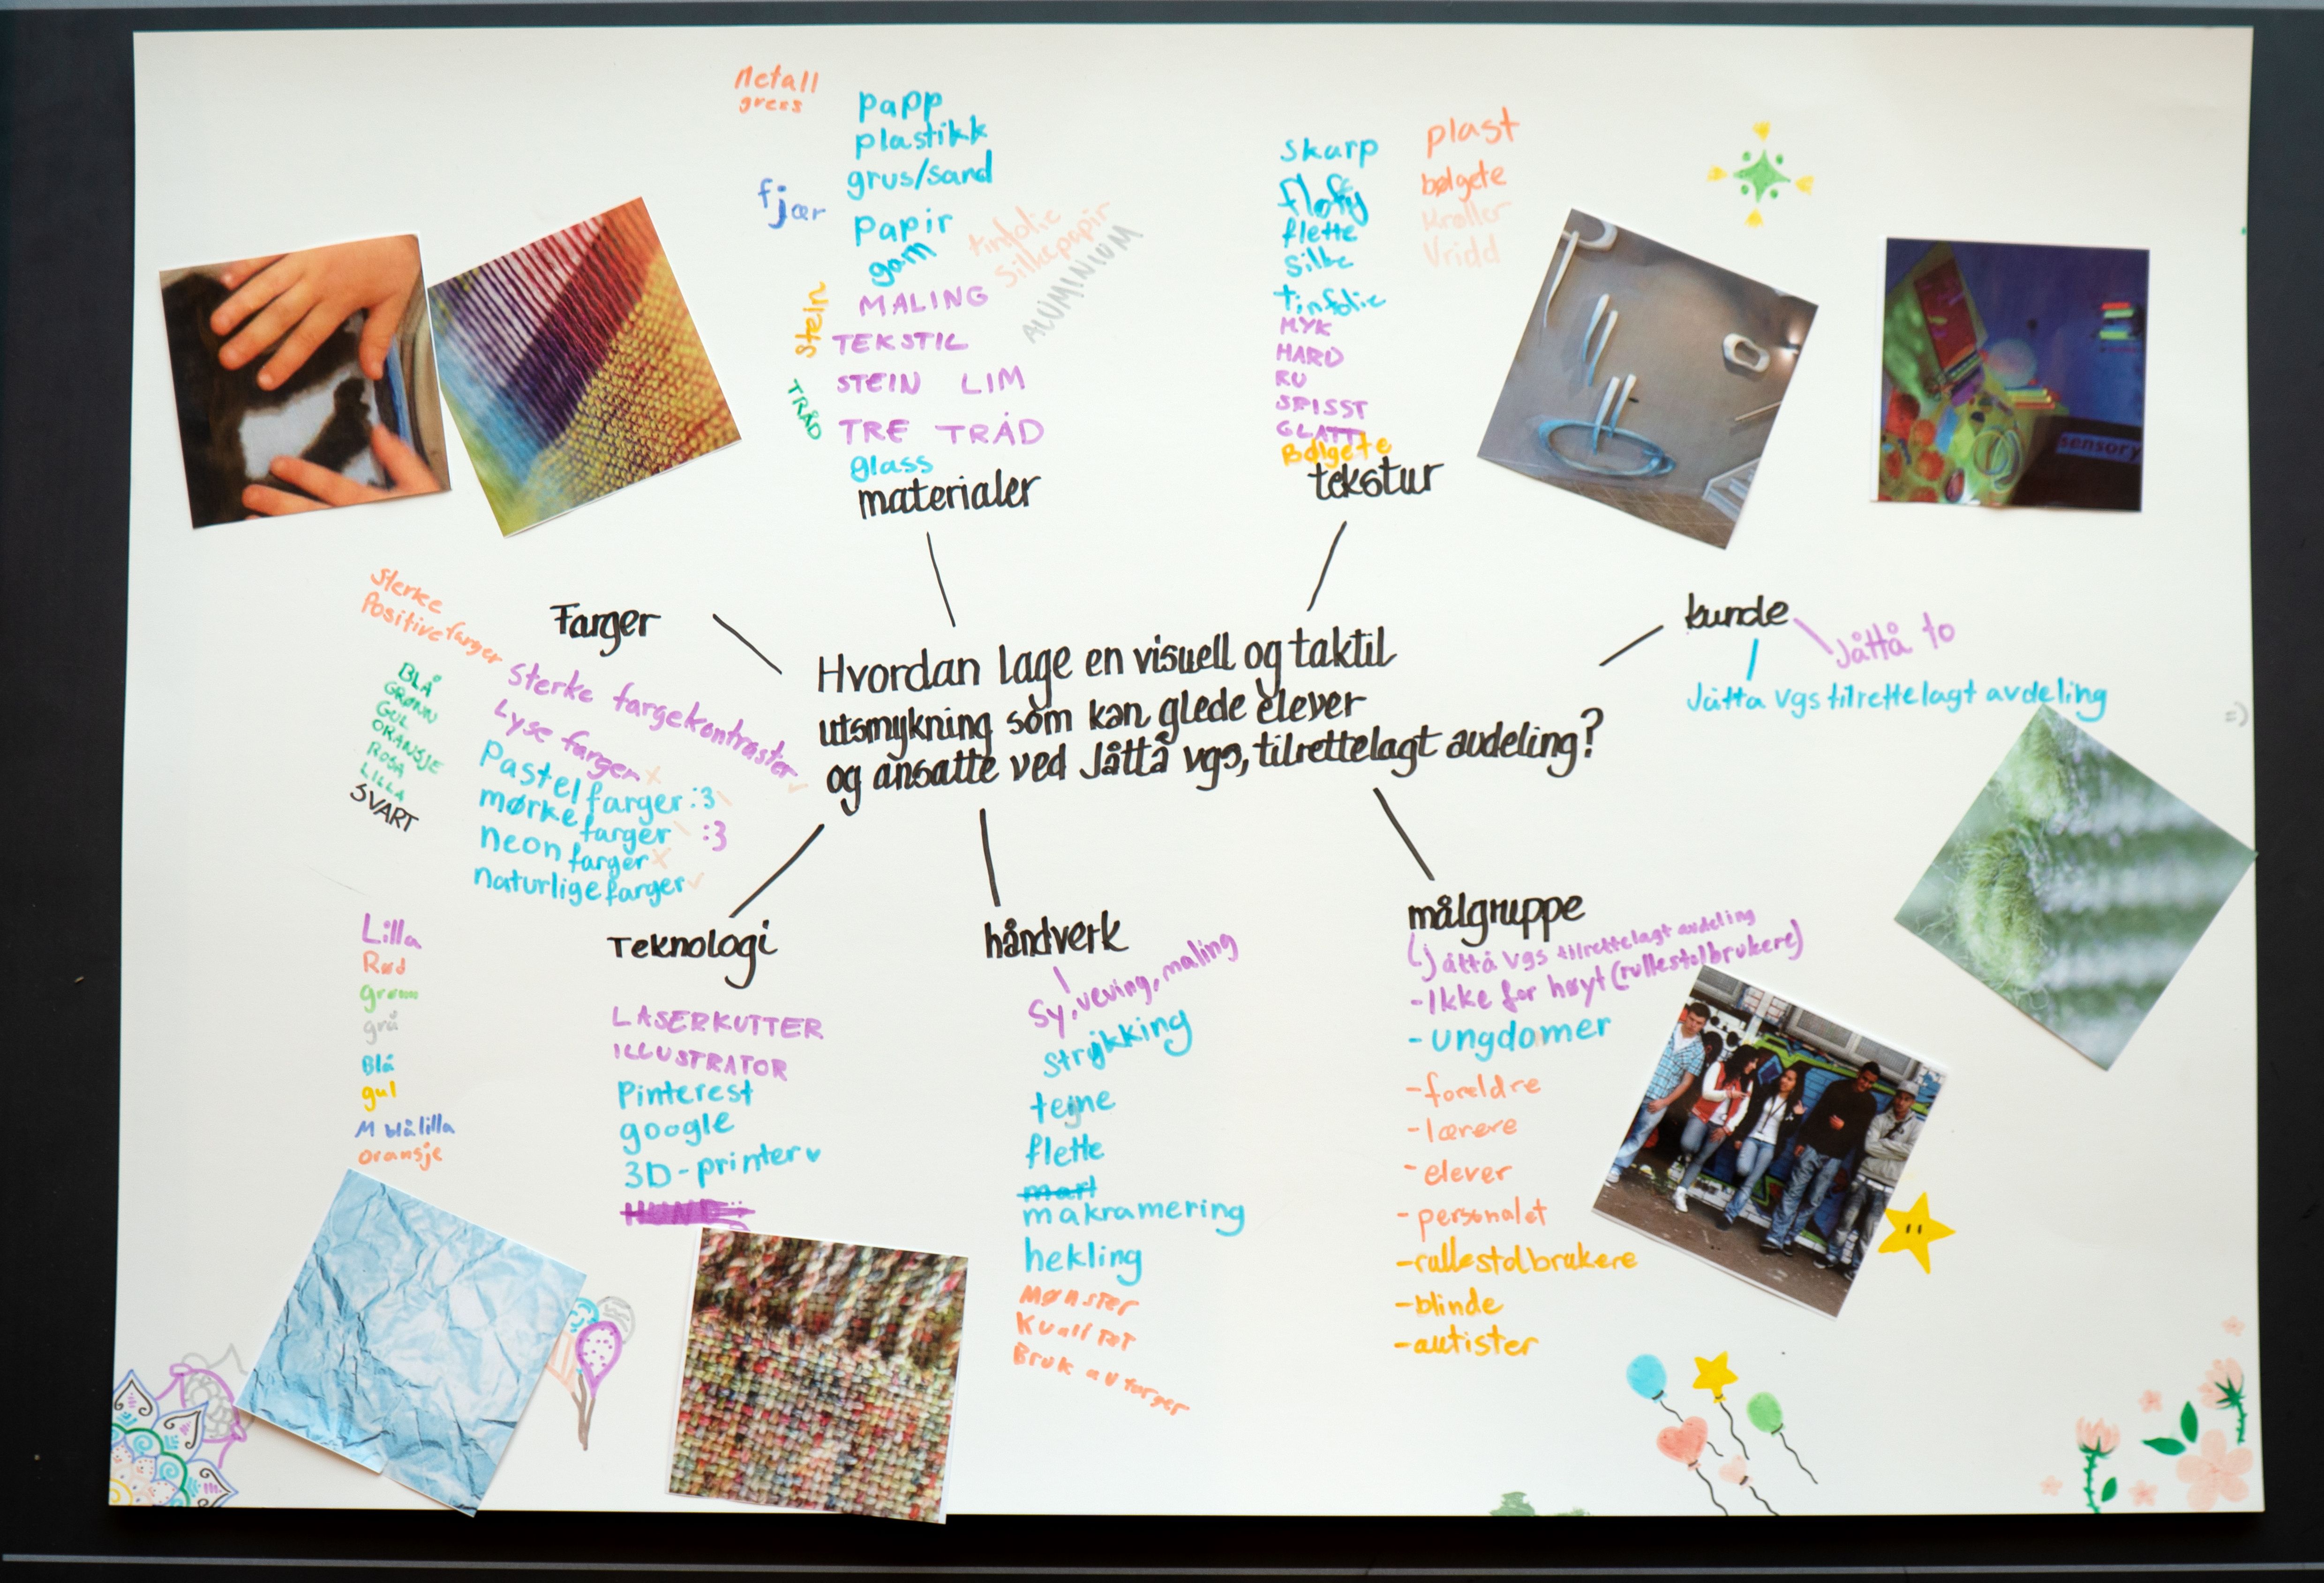 Metall
gress
papp
plastikk
grus/sand
fjær
papir
garn
tinfolie
Silkepapir
ALUMINIUM
MALING
Stein
TEKSTIL
STEIN LIM
TRÅD
TRE TRÅD
glass
materialer
skarp
flofy
flette
Silke
tinfolie
MYK
HARD
RU
SPISST
GLATT
Bølgete
tekstur
plast
bølgete
krøller
Vridd
sensory
Farger
Sterke
Positive farger
Sterke fargekontraster
Lyse farger x
Pastel farger :3
mørke farger :3
neon farger x
naturlige farger
BLÅ
GRØNN
GUL
ORANSJE
ROSA
LILLA
SVART
Lilla
Rød
grønn
grå
Blå
gul
M blålilla
oransje
Hvordan lage en visuell og taktil
utsmykning som kan glede elever
og ansatte ved Jåttå vgs, tilrettelagt avdeling?
kunde
Jåttå to
Jåtta vgs tilrettelagt avdeling
=)
Teknologi
LASERKUTTER
ILLUSTRATOR
Pinterest
google
3D-printer
håndverk
Sy, veving, maling
Strikking
tegne
flette
makramering
hekling
Mønster
Kvalitet
Bruk av farger
målgruppe
Jåttå vgs tilrettelagt avdeling
-Ikke for høyt (rullestolbrukere)
-ungdomer
-foreldre
-lærere
-elever
-personalet
-rullestolbrukere
-blinde
-autister